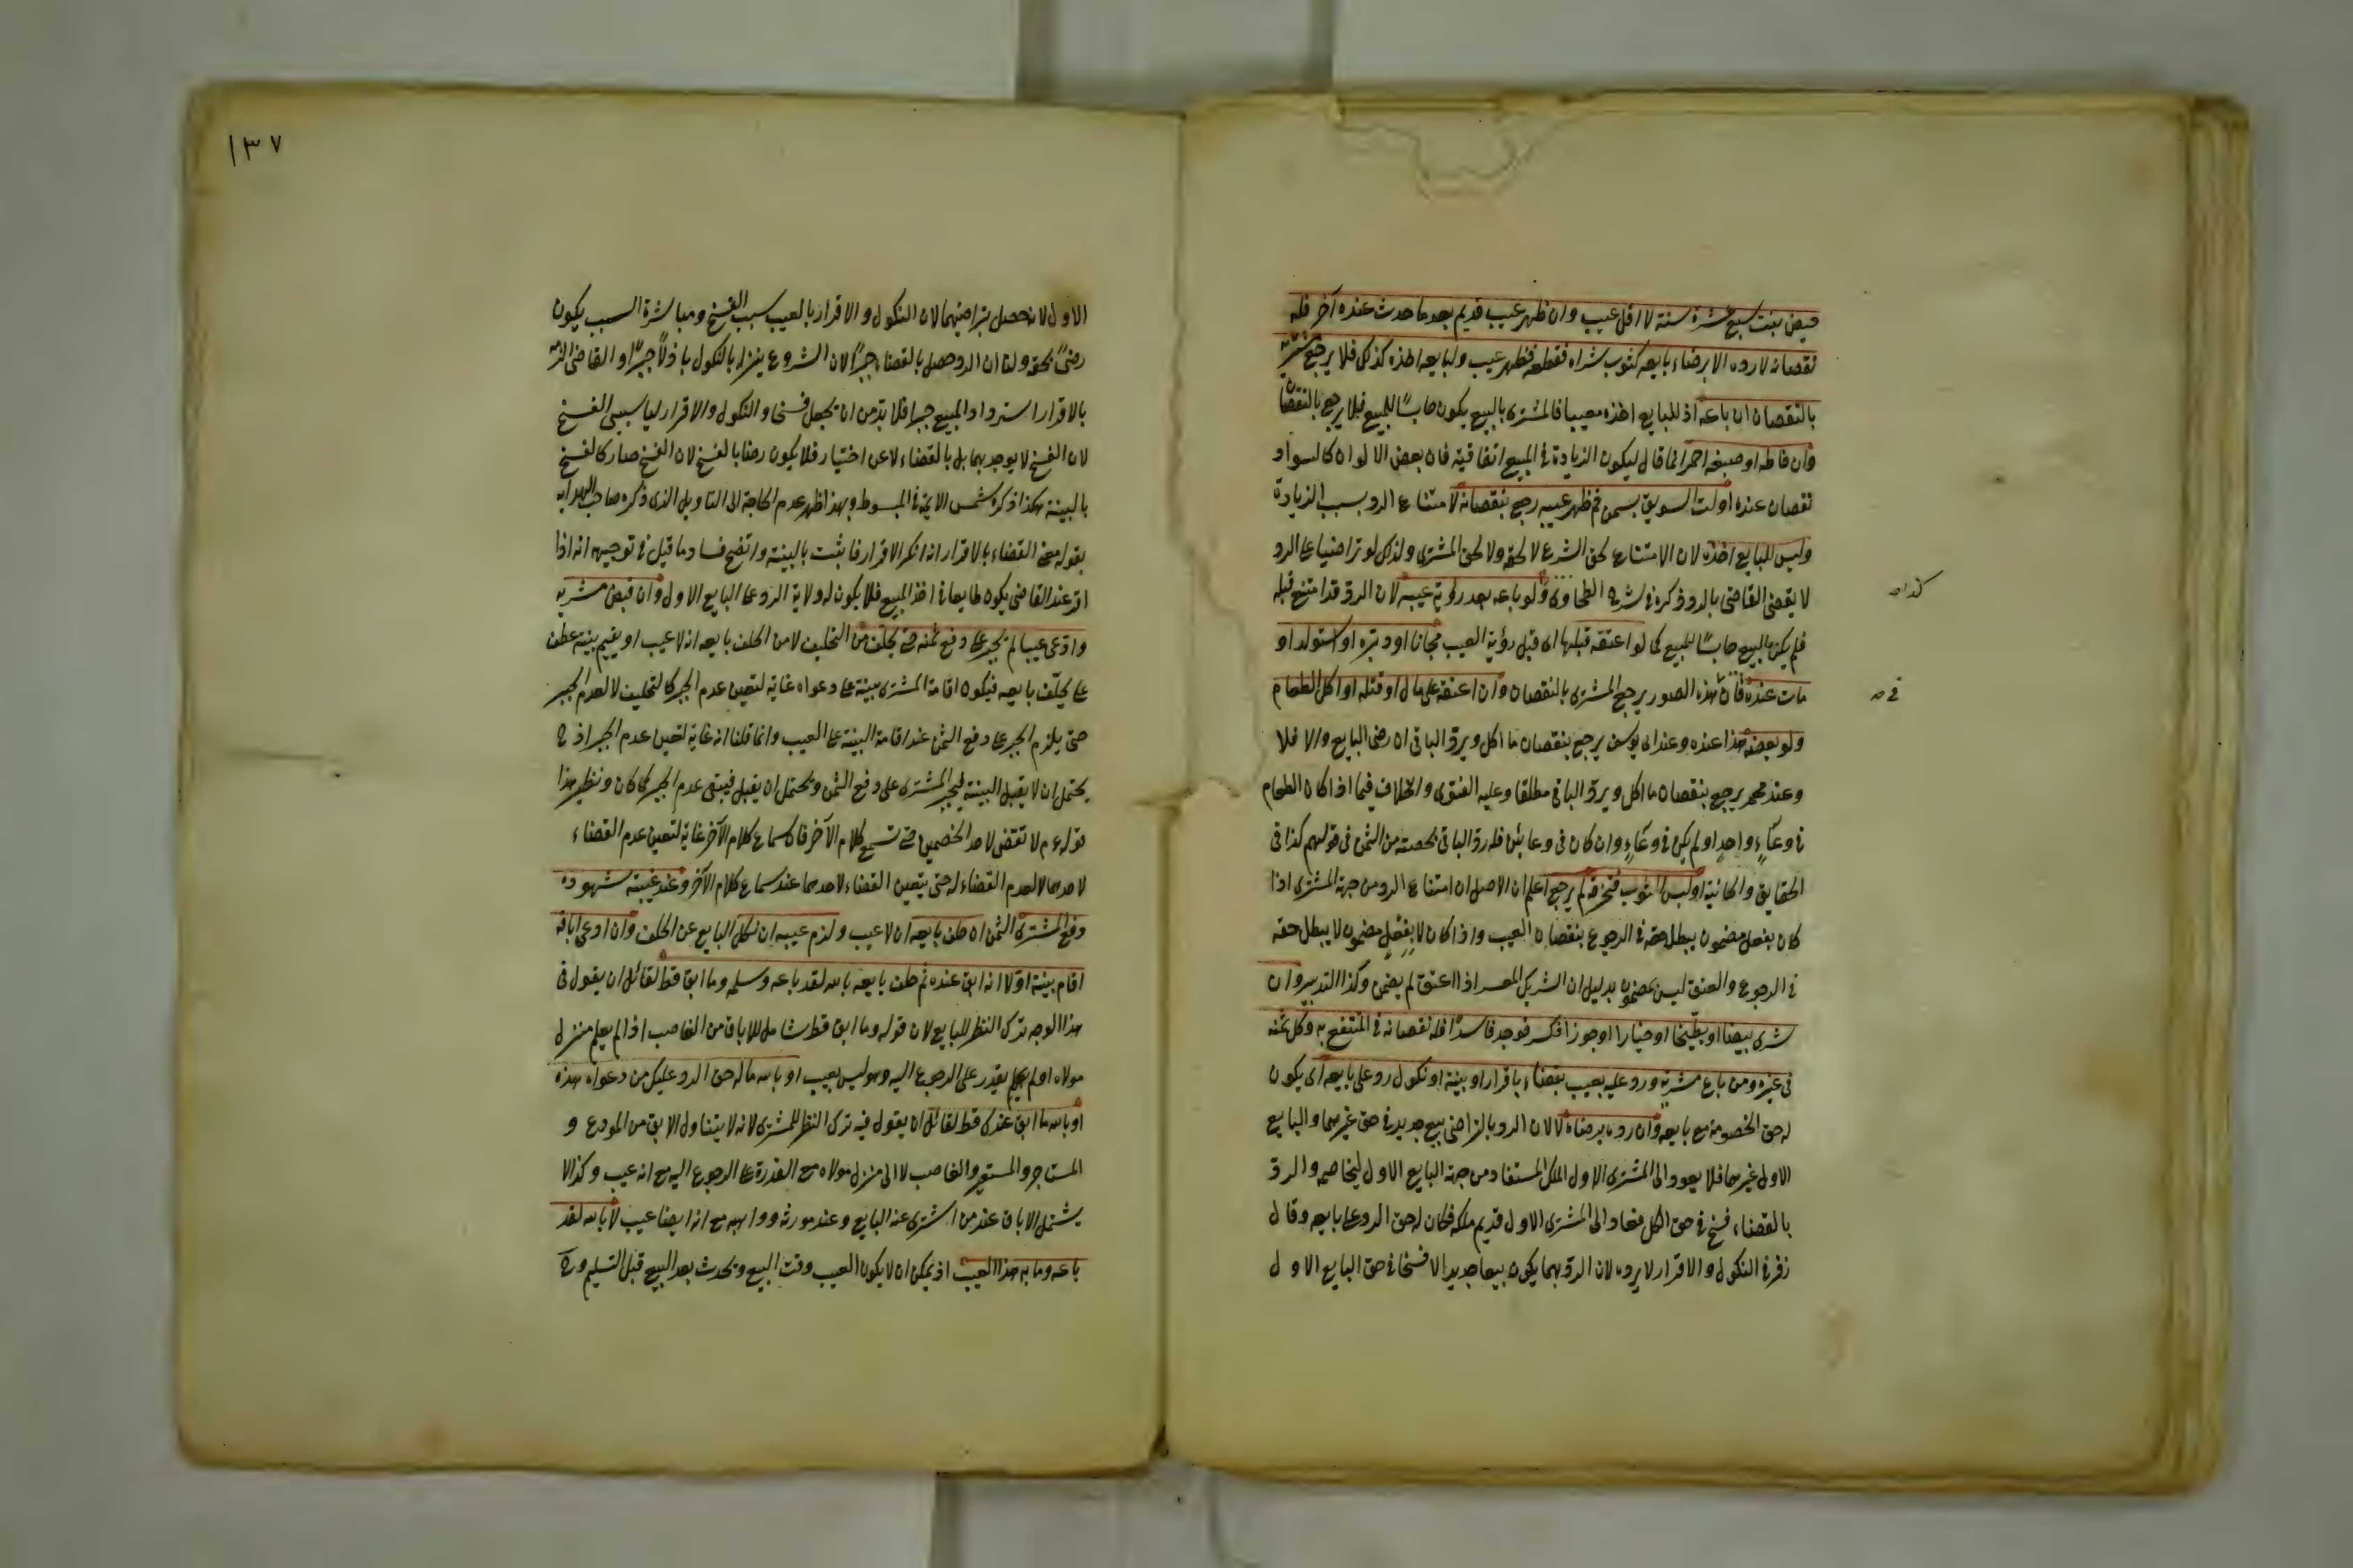 حيض بنت سبع عشرة سنة لا اقل عيب وان ظهر عيب قديم بعد ما حدث عنده آخر فله
نقصانه لا رده الا برضاء بايعه كثوب شراه فقطعه فظهر عيب ولبايعه اخذه كذلك فلا يرجع مشتريه
بالنقصان ان باعه اذ للبايع اخذه معيبا فالمشترى بالبيع يكون حابسًا للمبيع فلا يرجع بالنقصان
وان خاطه او صبغه احمر انما قال ليكون الزيادة في المبيع اتفاقية فان بعض الالوان كالسواد
نقصان عنده اولت السويق بسمن ثم ظهر عيبه رجع بنقصانه لامتناع الرد بسبب الزيادة
وليس للبايع اخذه لان الامتناع لحق الشرع لا لحقه ولا لحق المشترى ولذلك لو تراضيا على الرد
لا يقضى القاضى بالرد ذكره في شرح الطحاوى ولو باعه بعد رؤية عيبه لان الرد قد امتنع قبله
فلم يكن بالبيع حابسًا للمبيع كما لو اعتقه قبلها اى قبل رؤية العيب مجانا او دبره او استولد او
مات عنده فان هذه الصور يرجع المشترى بالنقصان وان اعتقه على مال او قتله او اكل الطعام
كذا صه
في صه
ولو بعضه هذا عنده وعند ابى يوسف يرجع بنقصان ما اكل ويرد الباقى ان رضى البايع والا فلا
وعند محمد يرجع بنقصان ما اكل ويرد الباقى مطلقا وعليه الفتوى والخلاف فيما اذا كان الطعام
في وعاء واحد او لم يكن في وعاء وان كان فى وعائين فله رد الباقى بحصته من الثمن فى قولهم كذا فى
الحقايق والخانية اولبس الثوب فتخرق لم يرجع اعلم ان الاصل ان امتناع الرد من جهة المشترى اذا
كان بفعل مضمون يبطل حقه في الرجوع بنقصان العيب واذا كان لا بفعل مضمون لا يبطل حقه
في الرجوع والعتق ليس بمضمون بدليل ان الشريك المعسر اذا اعتق لم يضمن وكذا التدبير وان
شرى بيضا او بطيخا او خيارا او جوزا فكسر فوجد فاسدًا فله نقصانه في المنتفع به وكل ثمنه
فى غيره ومن باع مشريه ورد عليه بعيب بقضاء باقرار او بينة او نكول رد على بايعه اى يكون
له حق الخصومة مع بايعه وان رده برضاه لا لان الرد بالتراضى بيع جديد في حق غيرهما والبايع
الاول غيرهما فلا يعود الى المشترى الاول الملك المستفاد من جهة البايع الاول ليخاصمه والرد
بالقضاء فسخ في حق الكل فعاد الى المشترى الاول قديم ملكه فكان له حق الرد على بايعه وقال
زفر في النكول والاقرار لا يرده لان الرد بهما يكون بيعا جديدا لا فسخا في حق البايع الاول
١٣٧
الاول لانه حصل بتراضيهما لان النكول والاقرار بالعيب سبب الفسخ ومباشرة السبب يكون
رضىً بحقه ولنا ان الرد حصل بالقضاء جبرًا لان الشرع ينزله بالنكول باذلًا جبرًا والقاضى الزمه
بالاقرار استرداد المبيع جبرا فلا بد من ان يجعل فسخا والنكول والاقرار ليسا سببى الفسخ
لان الفسخ لا يوجد بهما بل بالقضاء لا عن اختيار فلا يكون رضا بالفسخ لان الفسخ صار كالفسخ
بالبينة هكذا ذكره شمس الائمة في المبسوط وبهذا ظهر عدم الحاجة الى التاويل الذى ذكره صاحب الهداية
بقوله معنى القضاء بالاقرار انه انكر الاقرار فاثبت بالبينة واتضح فساد ما قيل في توجيهه انه اذا
اقر عند القاضى يكون طايعا في اخذ المبيع فلا يكون له ولاية الرد على البايع الاول وان قبض مشريه
وادعى عيبا لم يجبر على دفع ثمنه حتى يحلف من التحليف لا من الحلف بايعه انه لا عيب او يقيم بينة عطف
على يحلّف بايعه فيكون اقامة المشترى بينة على دعواه غاية لتعين عدم الجبر كالتحليف لا لعدم الجبر
حتى يلزم الجبر على دفع الثمن عند اقامة البينة على العيب وانما قلنا انه غاية لتعين عدم الجبر اذ ح
يحتمل ان لا يقبل البينة فيجبر المشترى على دفع الثمن ويحتمل ان يقبل فيبقى عدم الجبر كما كان ونظير هذا
قوله عم لا تقضى لاحد الخصمين حتى تسمع كلام الآخر فان سماع كلام الآخر غاية لتعين عدم القضاء
لاحدهما لا لعدم القضاء له حتى يتعين القضاء لاحدهما عند سماع كلام الآخر وعند غيبة شهوده
دفع المشترى الثمن ان حلف بايعه ان لا عيب ولزم عيبه ان نكل البايع عن الحلف وان ادعى اباقه
اقام بينة اولا انه ابق عنده ثم حلف بايعه بالله لقد باعه وسلمه وما ابق قط لقائل ان يقول فى
هذا الوجه ترك النظر للبايع لان قوله وما ابق قط شامل للاباق من الغاصب اذا لم يعلم منزل
مولاه او لم يقدر على الرجوع اليه وهو ليس بعيب او بالله ما له حق الرد عليك من دعواه هذه
او بالله ما ابق عندك قط لقائل ان يقول فيه ترك النظر للمشترى لانه لا يتناول الابق من المودع و
المستاجر والمستعير والغاصب لا الى منزل مولاه مع القدرة على الرجوع اليه مع انه عيب وكذا لا
يشتمل الاباق عند من اشترى عنه البايع وعند مورثه وواهبه مع انه ايضا عيب لا بالله لقد
باعه وما به هذا العيب اذ يمكن ان لا يكون العيب وقت البيع ويحدث بعد البيع قبل التسليم وح